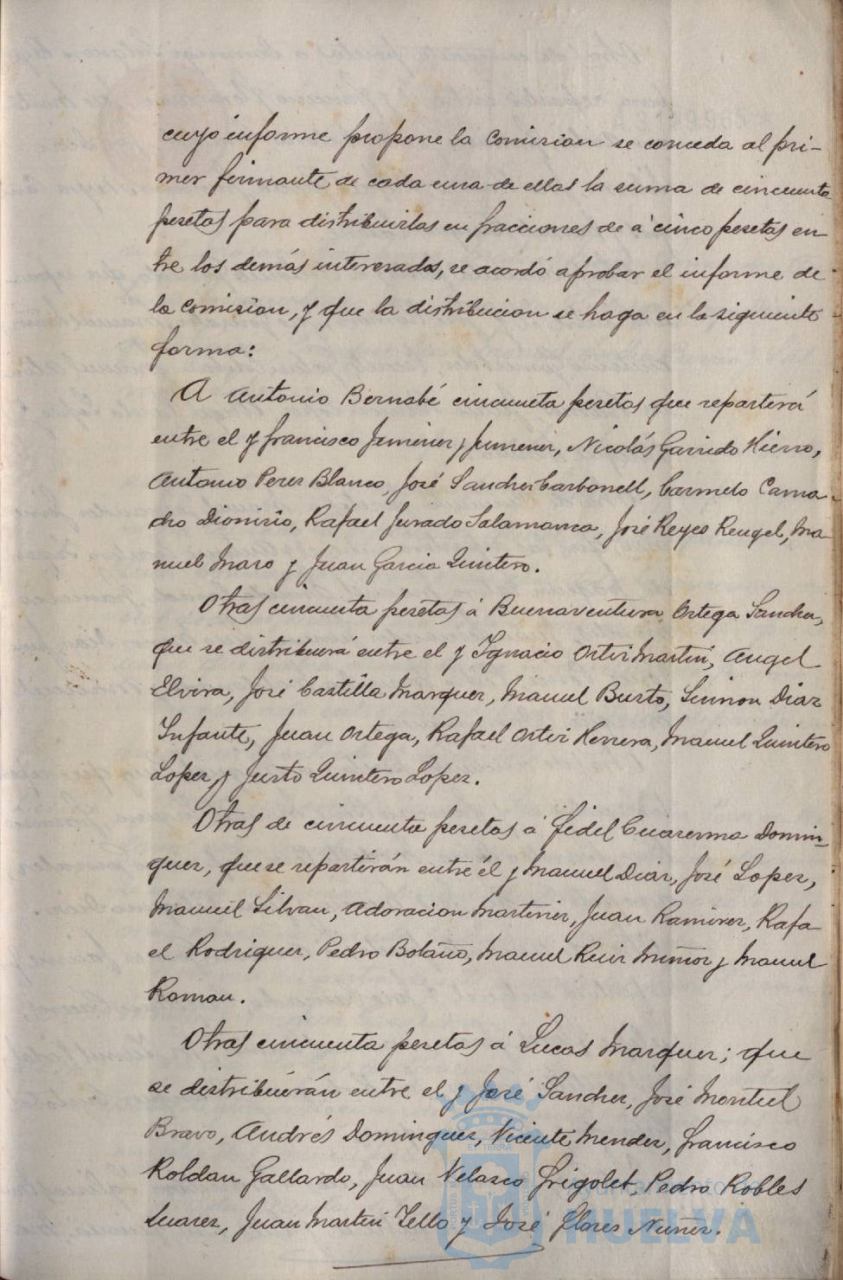 cuyo informe propone la Comision se conceda al pri-
mer firmante de cada una de ellas la suma de cincuenta
pesetas para distribuirlas en fracciones de á cinco pesetas en-
tre los demás interesados, se acordó aprobar el informe de
la Comision, y que la distribucion se haga en la siguiente
forma:
A Antonio Bernabé cincuenta pesetas que repartirá
entre el y Francisco Jimenez y Jimenez, Nicolás Garrido Hierro,
Antonio Perez Blanco, José Sanchez Carbonell, Carmelo Cama-
cho Dionisio, Rafael Jurado Salamanca, José Reyes Rengel, Ma-
nuel Maro y Juan Garcia Quintero.
Otras cincuenta pesetas á Buenaventura Ortega Sanchez,
que se distribuirá entre el y Ignacio Ortiz Martin, Angel
Elvira, José Castilla Marquez, Manuel Busto, Simon Diaz
Infante, Juan Ortega, Rafael Ortiz Herrera, Manuel Quintero
Lopez y Justo Quintero Lopez.
Otras de cincuenta pesetas á Fidel Cuaresma Domin-
guez, que se repartirán entre él y Manuel Diaz, José Lopez,
Manuel Silvan, Adoracion Martinez, Juan Ramirez, Rafa
el Rodriguez, Pedro Bolaño, Manuel Ruiz Muñoz y Manuel
Roman.
Otras cincuenta pesetas á Lucas Marquez; que
se distribuirán entre el y José Sanchez, José Montiel
Bravo, Andrés Dominguez, Vicente Mendez, Francisco
Roldan Gallardo, Juan Velasco Grigolet, Pedro Robles
Suarez, Juan Martin Tello y José Flores Nuñez.
HUELVA